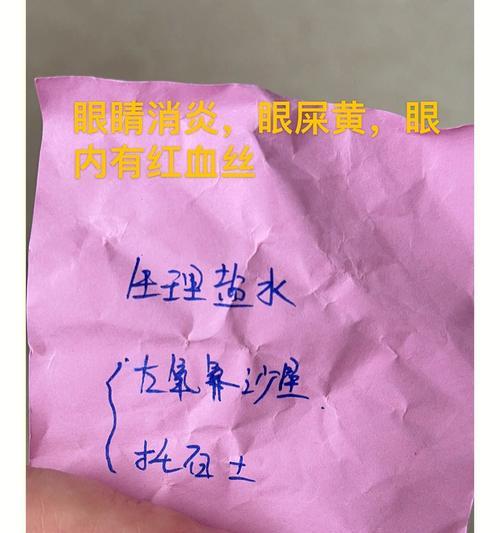 眼睛消炎，眼屎黄，眼
内有红血丝
生理盐水
左氧氟沙星
托百士